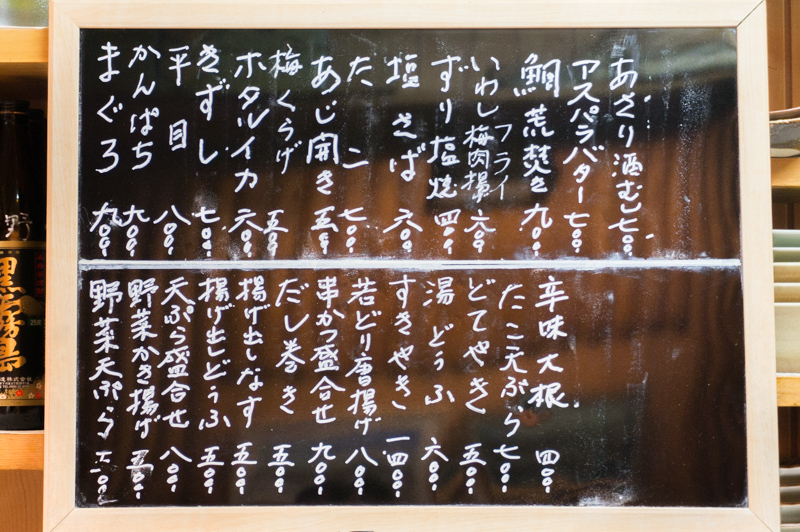 あさり酒むし 七〇〇.
アスパラバター 七〇〇.
鯛荒焚き 九〇〇.
いわし フライ 梅肉揚 六〇〇.
ずり塩焼 四〇〇.
塩さば 六〇〇.
たこ 七〇〇.
あじ開き 五〇〇.
梅くらげ 五〇〇.
ホタルイカ 六〇〇.
きずし 七〇〇.
平目 八〇〇.
かんぱち 九〇〇.
まぐろ 九〇〇.
辛味大根 四〇〇.
たこ天ぷら 七〇〇.
どてやき 五〇〇.
湯どうふ 六〇〇.
すきやき 一四〇〇.
若どり唐揚げ 八〇〇.
串かつ盛合せ 九〇〇.
だし巻き 五〇〇.
揚げ出しなす 五〇〇.
揚げ出しどうふ 五〇〇.
天ぷら盛合せ 八〇〇.
野菜かき揚げ 五〇〇.
野菜天ぷら
野
黒